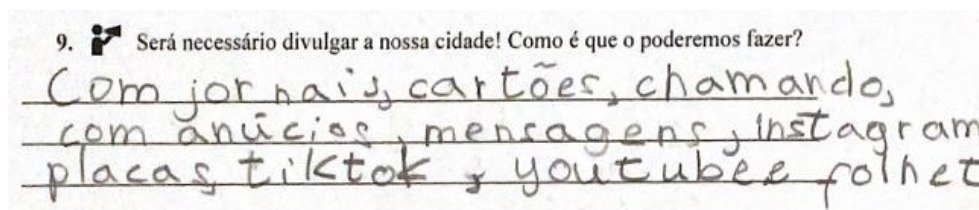 9. Será necessário divulgar a nossa cidade! Como é que o poderemos fazer?
Com jornais, cartões, chamando,
com anúcios, mensagens, instagram
placas, tiktok, youtube e folhet